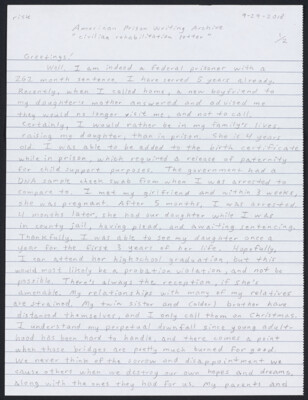 9-29-2018
American Prison Writing Archive
"civilian rehabilitation center"
1/2
Greetings!
Well, I am indeed a federal prisoner with a
262 month sentence. I have served 5 years already.
Recently, when I called home, a new boyfriend to
my daughter's mother answered and advised me
they would no longer visit me, and not to call.
Certainly, I would rather be in my family's lives,
raising my daughter, than in prison. She is 4 years
old. I was able to be added to the birth certificate
while in prison, which required a release of paternity
for child support purposes. The government had a
DNA sample cheek swab from when I was arrested to
compare to. I met my girlfriend and within 8 weeks,
she was pregnant. After 5 months, I was arrested.
4 months later, she had our daughter while I was
in county jail, having plead, and awaiting sentencing.
Thankfully, I was able to see my daughter once a
year for the first 3 years of her life. Hopefully,
I can attend her highschool graduation, but this
would most likely be a probation violation, and not be
possible. There's always the exception, if she's
amenable. My relationships with many of my relatives
are strained. My twin sister and (older) brother have
distanced themselves, and I only call them on Christmas.
I understand my perpetual downfall since young adult-
hood has been hard to handle, and there comes a point
when those bridges are pretty much burned for good.
We never think of the sorrow and disappointment we
cause others when we destroy our own hopes and dreams,
along with the ones they had for us. My parents and